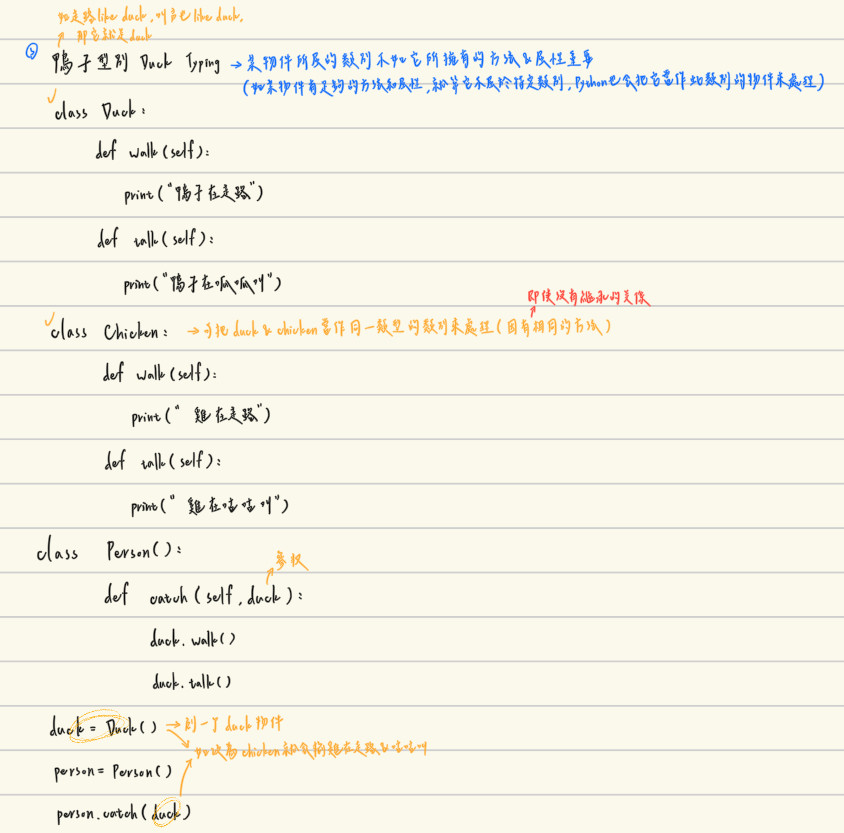 如走路like duck,叫聲也like duck,
那它就是duck
③ 鴨子型別 Duck Typing → 某物件所屬的類別不如它所擁有的方法&屬性重要
(如果物件有足夠的方法和屬性,就算它不屬於指定類別,Python也會把它當作此類別的物件來處理)
class Duck:
def walk(self):
print("鴨子在走路")
def talk(self):
print("鴨子在呱呱叫")
即使沒有繼承的關係
class Chicken: → 可把duck & chicken當作同一類型的類別來處理(因有相同的方法)
def walk(self):
print("雞在走路")
def talk(self):
print("雞在咕咕叫")
class Person():
參數
def catch(self,duck):
duck.walk()
duck.talk()
duck = Duck() → 創一個duck物件
如改為chicken就會印雞在走路&咕咕叫
person = Person()
person.catch(duck)